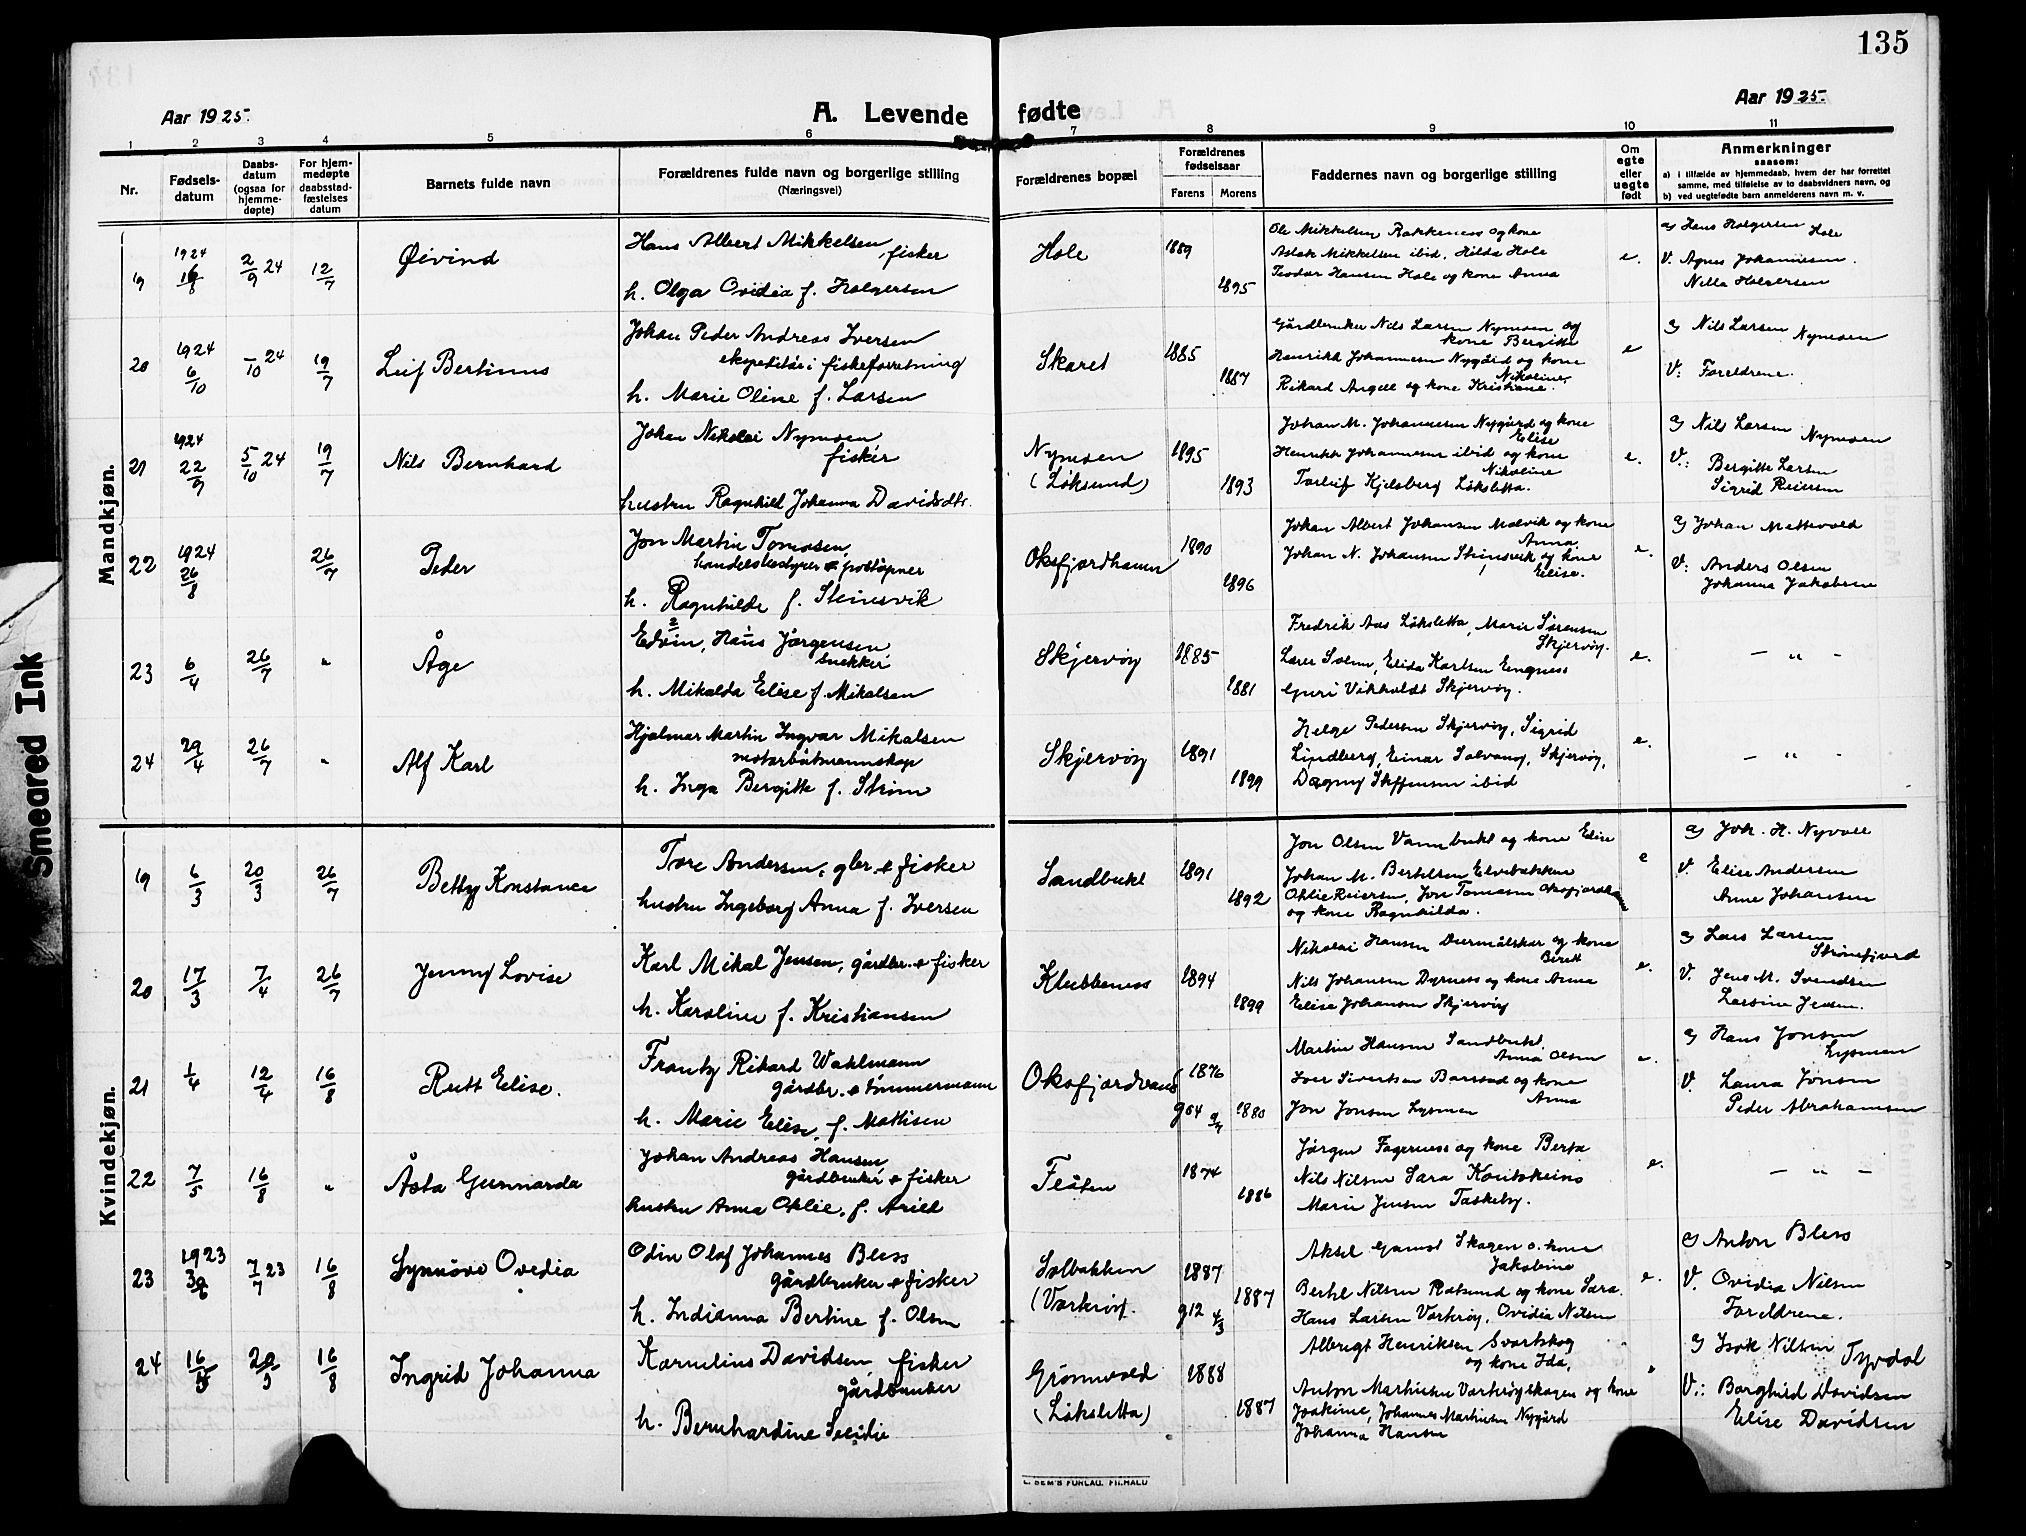 135
Aar 1925.
A. Levende fødte
Aar 1925.
1 2 3 4 5 6 7 8 9 10 11
Nr.
Fødsels-
datum
Daabs-
datum
(ogsaa for
hjemme-
døpte)
For hjem-
medøpte
daabsstad-
fæstelses
datum
Barnets fulde navn
Forældrenes fulde navn og borgerlige stilling
(Næringsvei)
Forældrenes bopæl
Forældrenes
fødselsaar
Farens Morens
Faddernes navn og borgerlige stilling
Om
egte
eller
uegte
født
Anmerkninger
saasom:
a) i tilfælde av hjemmedaab, hvem der har forrettet
samme, med tilføielse av to daabsvidners navn, og
b) ved uegtefødte barn anmelderens navn m. v.
Mandkjøn.
19 1924 16/8 2/9 24 12/7 Øivind
Hans Albert Mikkelsen, fisker
h. Olga Ovidia f. Holgersen
Hole 1889 1895
Ole Mikkelsen Rakkenes og kone
Aslak Mikkelsen ibid, Hilda Hole
Teodor Hansen Hole og kone Anna
e.
a) Hans Holgersen Hole
V. Agnes Johannesen.
Nilla Holgersen
20 1924 6/10 -/10 24 19/7 Leif Bertinus
Johan Peder Andreas Iversen
ekspeditør i fiskeforretning
h. Marie Oline f. Larsen
Skaret 1885 1887
Gårdbruker Nils Larsen Nymoen og
kone Bergitte
Henrikk Johannesen Nygård og kone
Nikoline,
Rikard Angell og kone Kristiane.
e
a) Nils Larsen Nymoen
V: Foreldrene.
21 1924 22/9 5/10 24 19/7 Nils Bernhard
Johan Nikolai Nymoen,
fisker
hustru Ragnhild Johanna Davidsdtr.
Nymoen
(Løksund)
1895 1893
Johan M. Johannesen Nygård og kone
Elise
Henrikk Johannesen ibid og kone
Nikoline
Torleif Kjelsberg Løksletta.
e.
a) Nils Larsen Nymoen
V.: Bergitte Larsen
Sigrid Reiersen
22 1924 26/8 26/7 Peder
Jon Martin Tomasen,
handelsbestyrer & postopner
h. Ragnhilde f. Steinsvik
Oksfjordhamn 1890 1896
Johan Albert Johansen Malvik og kone
Anna
Johan N. Johansen Steinsvik og kone
Elise.
e.
a) Johan Mettevold
V: Anders Olsen
Johanna Jakobsen
23 6/4 26/7 " Åge
Edvin, Hans Jørgensen
snekker
h. Mikalda Elise f. Mikalsen
Skjervøy 1885 1881
Fredrik Aas Løksletta, Marie Sørensen
Skjervøy.
Lars Solem, Elida Karlsen Engnes
Guri Vikholdt Skjervøy.
e.
- " -
24 29/4 26/7 " Alf Karl
Hjalmar Martin Ingvar Mikalsen
motorbåtmannskap
h. Inga Bergitte f. Strøm
Skjervøy 1891 1899
Helge Pedersen Skjervøy, Sigrid
Lindberg, Einar Solvang, Skjervøy,
Dagny Steffensen ibid
e.
- " -
Kvindekjøn.
19 6/3 20/3 26/7 Betty Konstance
Tore Andersen, gbr. & fisker
hustru Ingeborg Anna f. Iversen
Sandbukt 1891 1892
Jon Olsen Vannbukt og kone Elise
Johan M. Bertelsen Elvebakken
Oklie Reiersen, Jon Tomasen Oksfjordhamn
og kone Ragnhilda.
e
a) Joh. H. Nyvoll
V. Elise Andersen
Anne Johansen
20 17/3 7/4 26/7 Jenny Lovise
Karl Mikal Jensen, gårdbr. & fisker
h. Karoline f. Kristiansen
Klubbenes 1894 1899
Nikolai Hansen Duvmålskar og kone
Berett
Nils Johansen Dyrnes og kone Anna
Elise Johansen Skjervøy
e.
a) Lars Larsen
Straumfjord
V. Jens M. Svendsen
Larsine Jensen.
21 1/4 12/4 16/8 Rutt Elise.
Frantz Rikard Wahlmann
gårdbr. & tømmermann
h. Marie Elise, f. Mathisen
Oksfjordvand 1876 1880
g 04
Martin Hansen Sandbukt.
Anna Olsen
Iver Sivertsen Barstad og kone
Anna
Jon Jonsen Lysmen
e.
a) Hans Jonsen
Lysmen
V. Laura Jonsen
Peder Abrahamsen
22 7/5 16/8 " Åsta Gunnarda
Johan Andreas Hansen,
gårdbruker & fisker
hustru Anna Oklie, f. Arild
Flåten 1874 1886
Jørgen Fagernes og kone Berta
Nils Nilsen Sara Koutokeino
Marie Jensen Taskeby.
e.
- " -
23 1923 30/6 7/7 23 16/8 Synnøve Ovedia
Odin Olaf Johannes Bless
gårdbruker & fisker
h. Indianna Bertine f. Olsen
Solbakken
(Vorterøy.
1887 1887
g12 4/3
Aksel Gamst Skagen o. kone
Jakobine
Bertel Nilsen Ratsund og kone Sara.
Hans Larsen Vorterøy, Ovidia Nilsen
e.
a) Anton Bless
V. Ovidia Nilsen
Foreldrene.
24 16/5 16/8 Ingrid Johanna
Kornelius Davidsen, fisker
gårdbruker
h. Bernhardine Seeidie
Grønnvold
(Løksletta)
1888 1887
Albrigt Henriksen Svartskog
og kone Ida,
Anton Martinsen Vorterøyskagen og kone
Joakime, Johannes Martinsen Nygård
Johanna Hansen
a) Isak Nilsen Tyvdal
V.: Borghild Davidsen
Elise Davidsen
Smeared Ink